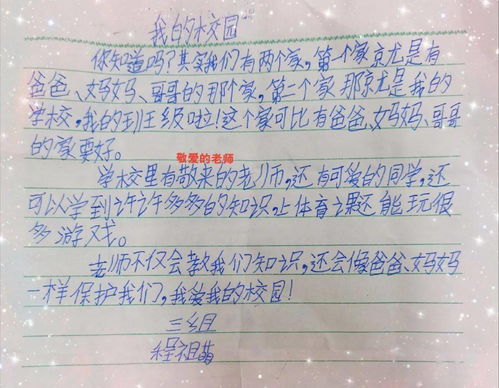 我的校园
你知道吗?其实我们有两个家,第一个家京尤是有
爸爸、妈妈、哥哥的那个家,第二个家那京尤是我的
学校,我的班级啦!这个家可比有爸爸、妈妈、哥哥
的家要好。
敬爱的老师
学校里有敬来的老师,还有可爱的同学,还
可以学到许许多多的知识,上体育课还能玩很
多游戏。
老师不仅会教我们知识,还会像爸爸、妈妈
一样保护我们,我爱我的校园!
三组
程祖萌